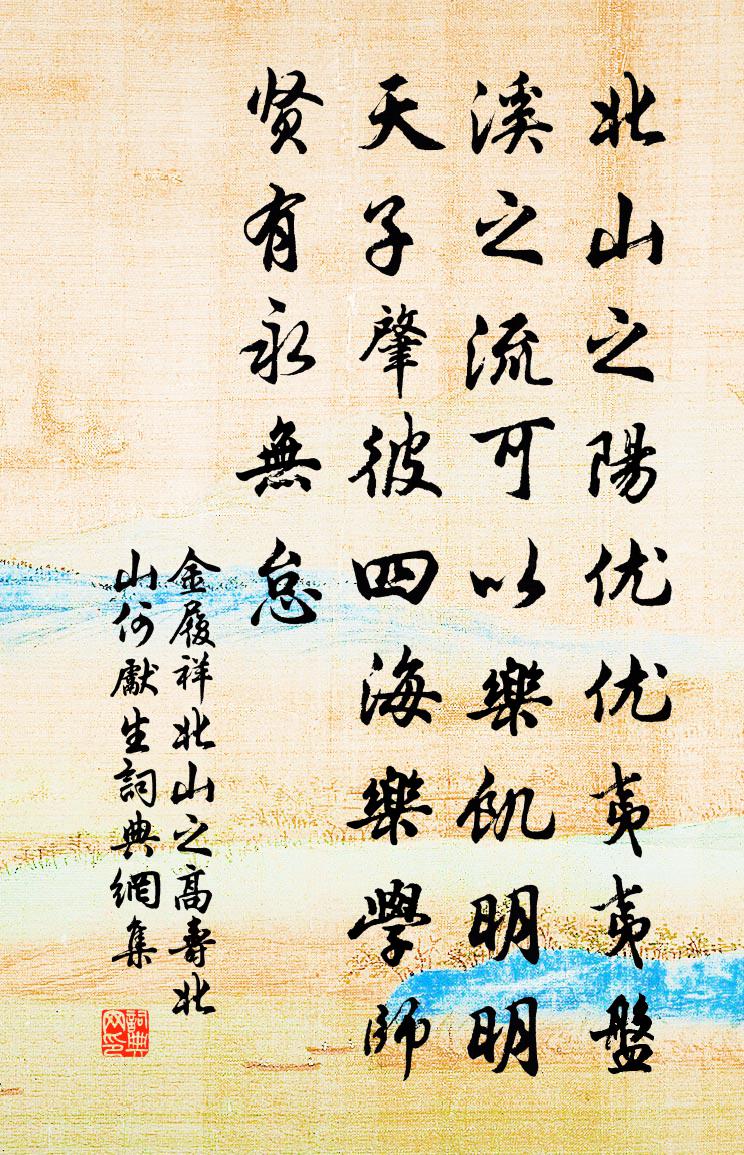 北山之陽优优夷夷盤
溪之流可以樂飢明明
天子肇彼四海樂學師
贤有永無怠
金履祥北山之高壽北
山何獻生詞典網集
詞典
网印